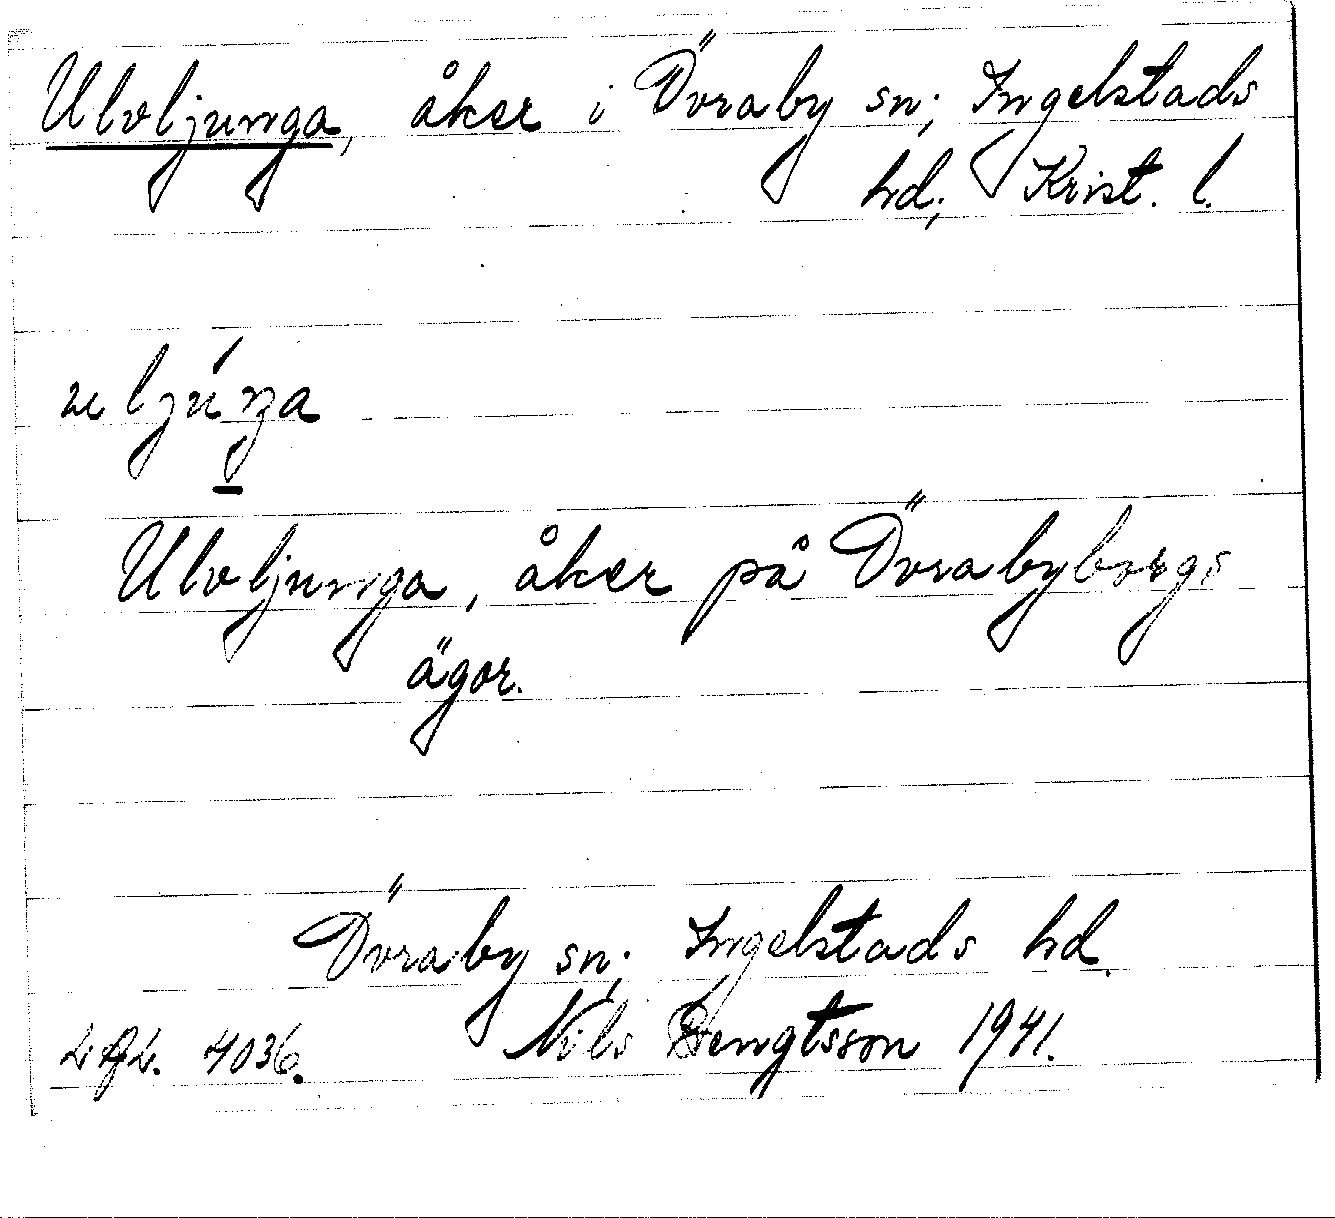 Ulvljunga, åker i Övraby sn; Ingelstads
hd; Krist. l.
Ulvljunga, åker på Övrabyborgs
ägor.
Övraby sn; Ingelstads hd.
Nils Bengtsson 1941.
4036.